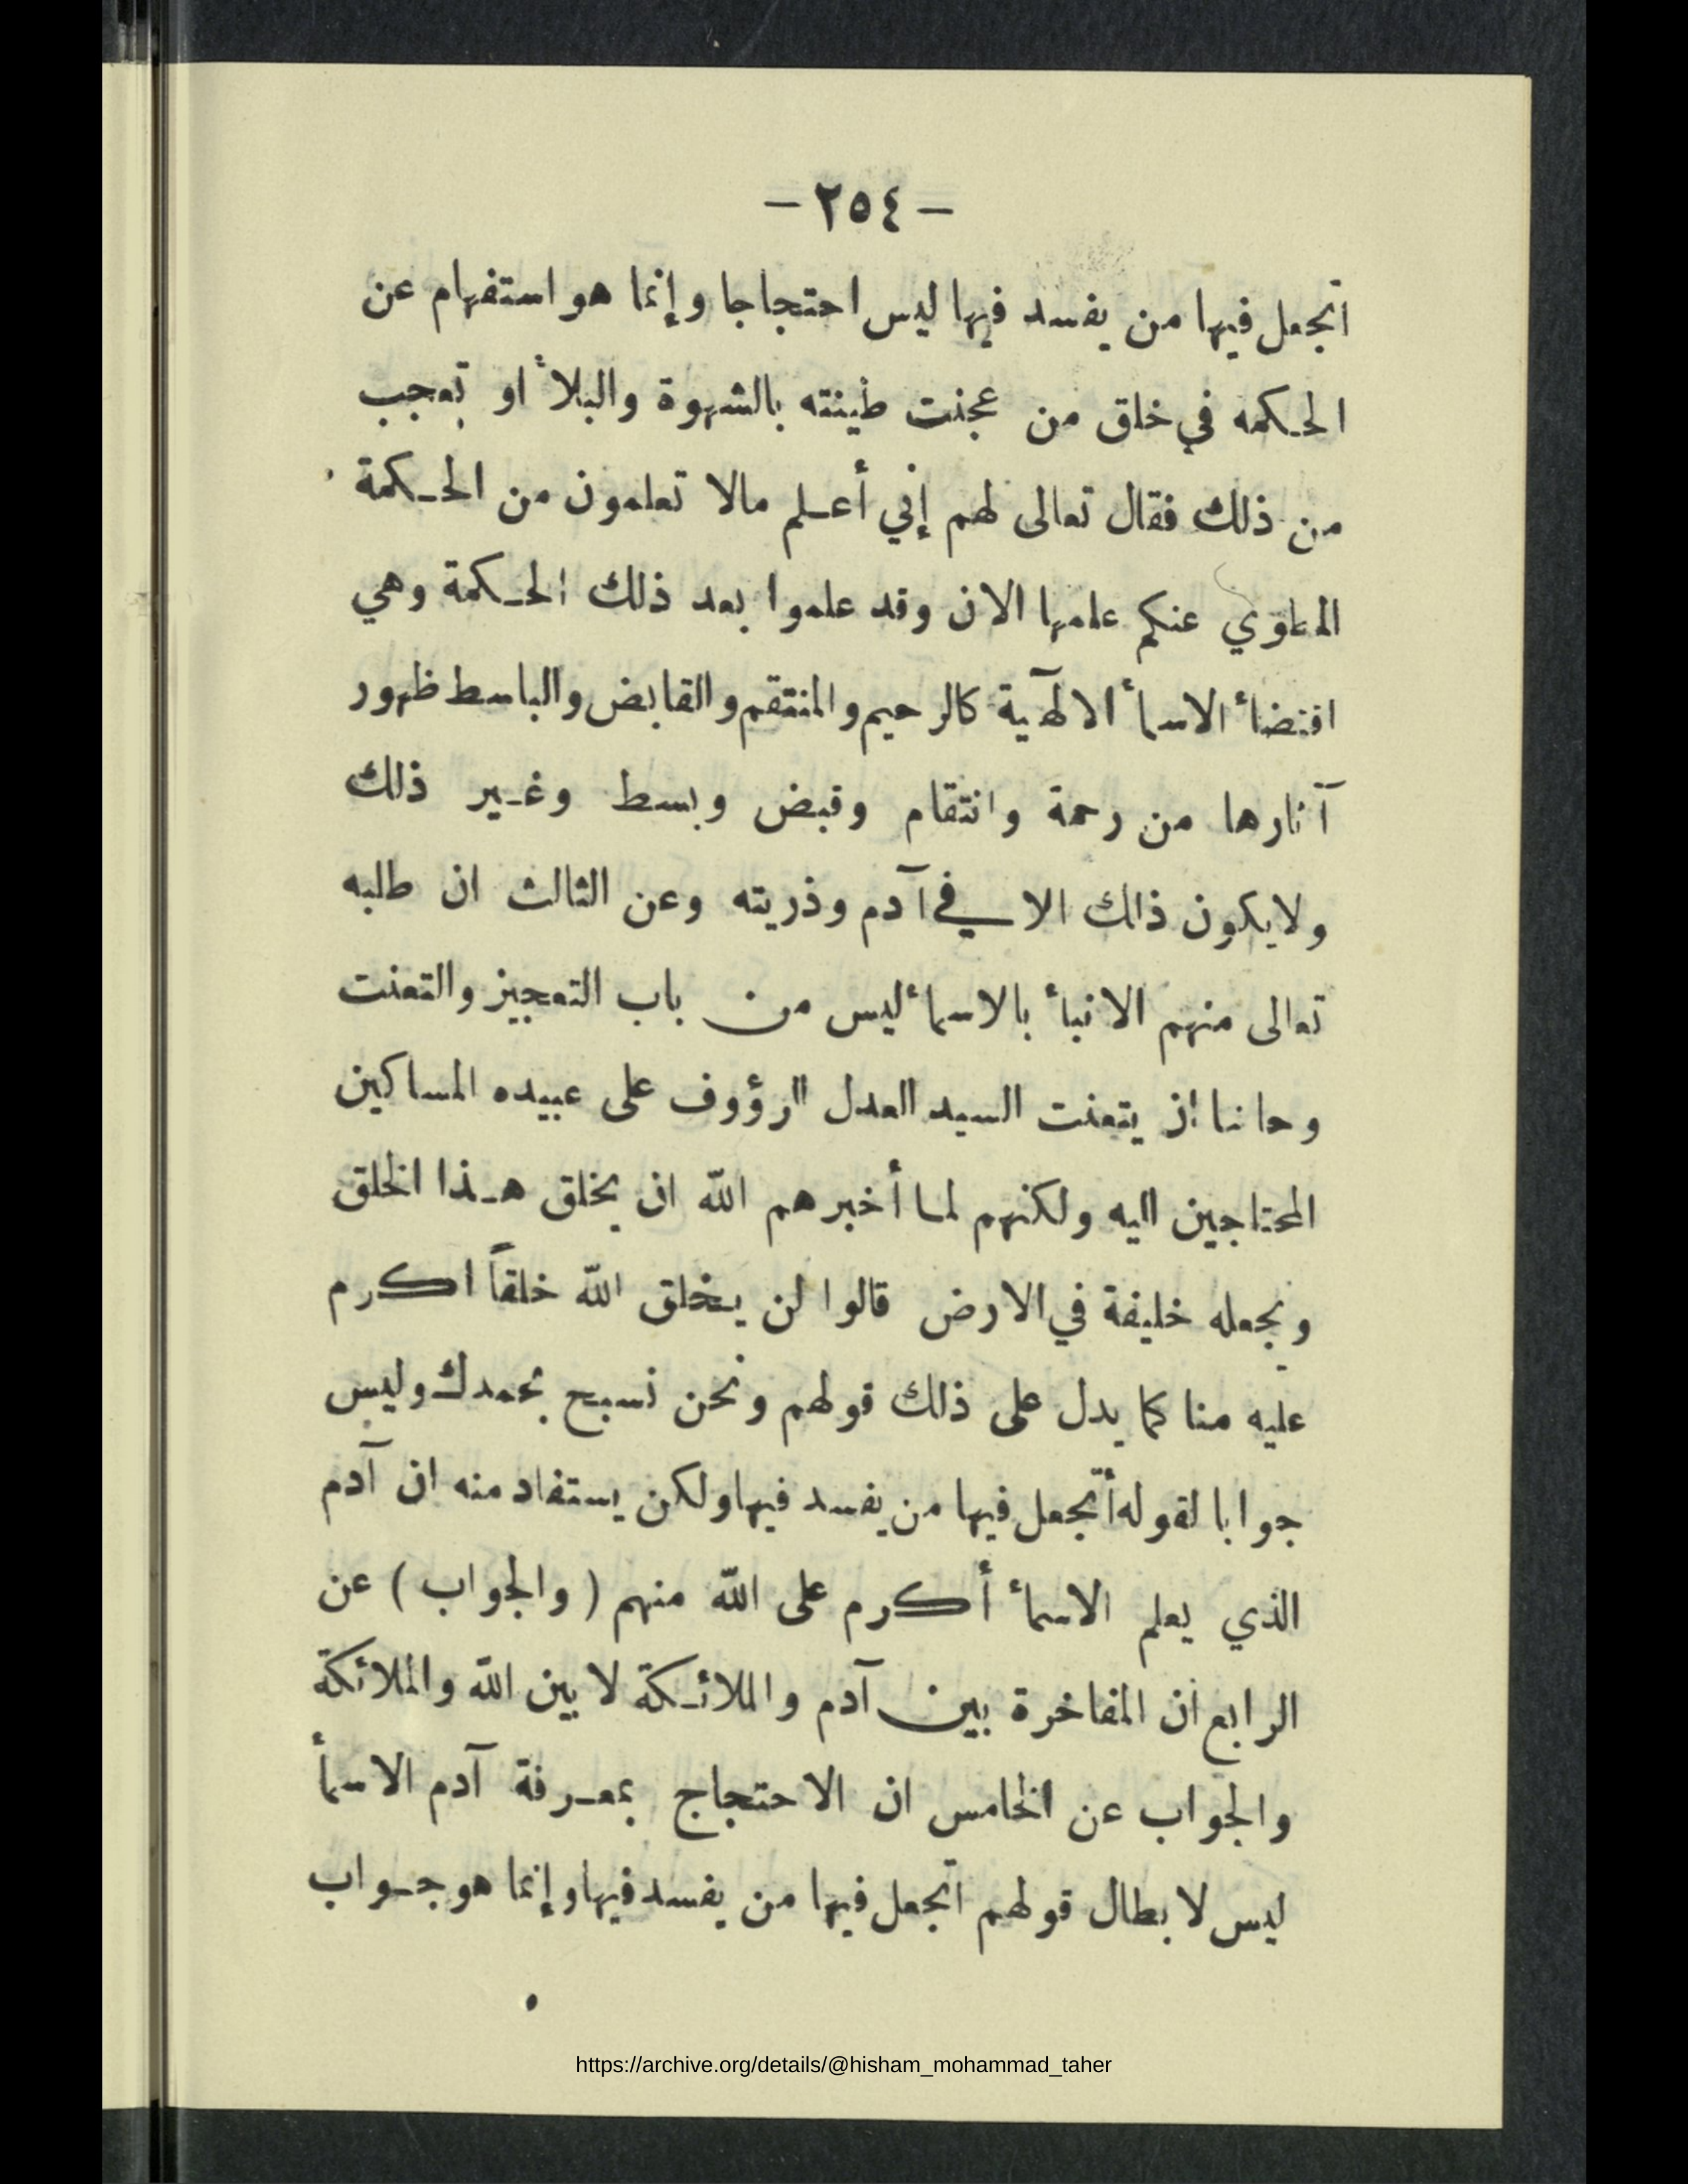 - ٢٥٤ -
اتجعل فيها من يفسد فيها ليس احتجاجا وإنما هو استفهام عن
الحكمه في خلق من عجنت طينته بالشهوة والبلأ او تعجب
من ذلك فقال تعالى لهم إني أعلم مالا تعلمون من الحكمة
المطوي عنكم علمها الان وقد علموا بعد ذلك الحكمة وهي
اقتضأ الاسمأ الالهية كالرحيم والمنتقم والقابض والباسط ظهور
آثارها من رحمة وانتقام وقبض وبسط وغير ذلك
ولايكون ذلك الا في آدم وذريته وعن الثالث ان طلبه
تعالى منهم الانبأ بالاسمأ ليس من باب التعجيز والتعنت
وحاشا ان يتعنت السيد العدل الرؤوف على عبيده المساكين
المحتاجين اليه ولكنهم لما أخبرهم الله ان يخلق هذا الخلق
ويجعله خليفة في الارض قالوا لن يخلق الله خلقاً اكرم
عليه منا كما يدل على ذلك قولهم ونحن نسبح بحمدك وليس
جوابا لقوله أتجعل فيها من يفسد فيها ولكن يستفاد منه ان آدم
الذي يعلم الاسمأ أكرم على الله منهم ( والجواب ) عن
الرابع ان المفاخرة بين آدم والملائكة لا بين الله والملائكة
والجواب عن الخامس ان الاحتجاج بمعرفة آدم الاسمأ
ليس لابطال قولهم اتجعل فيها من يفسد فيها وإنما هو جواب
https://archive.org/details/@hisham_mohammad_taher